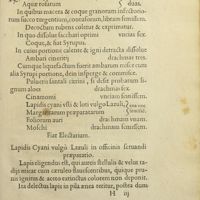 Aquæ rosarum duas.
In quibus macera & coque granorum infectorum
succo torgentium, contusorum, libram semissem.
Decoctum rubens colatur & exprimitur.
In quo dissolue sacchari optimi vncias sex.
Coque, & fiat Syrupus.
In cuius portione calente & igni detracta dissolue
Ambari sinceri drachmas tres.
Cumque liquefactum fuerit ambarum misce cum
alia Syrupi portione, dein insperge & commisce.
Pulueris santali citrini, si deest probatum
ligni aloes drachmas sex.
Cinamomi vnciam semissem.
Lapidis cyani vsti & loti vulgo Lazuli,
Margaritarum præparatarum
Foliorum auri drachmam vnam.
Moschi drachmam semissem.
Fiat Electarium.
Lapidis Cyani vulgò Lazuli in officinis seruandi
præparatio.
Lapis eligendus est, qui aureis stellulis & velut
micat cum cæruleo flauescentibus, quique in
prunis & igne accenso nativum colorem non deponit.
Ita delectus lapis in pila ænea teritur, postea dum
H iij